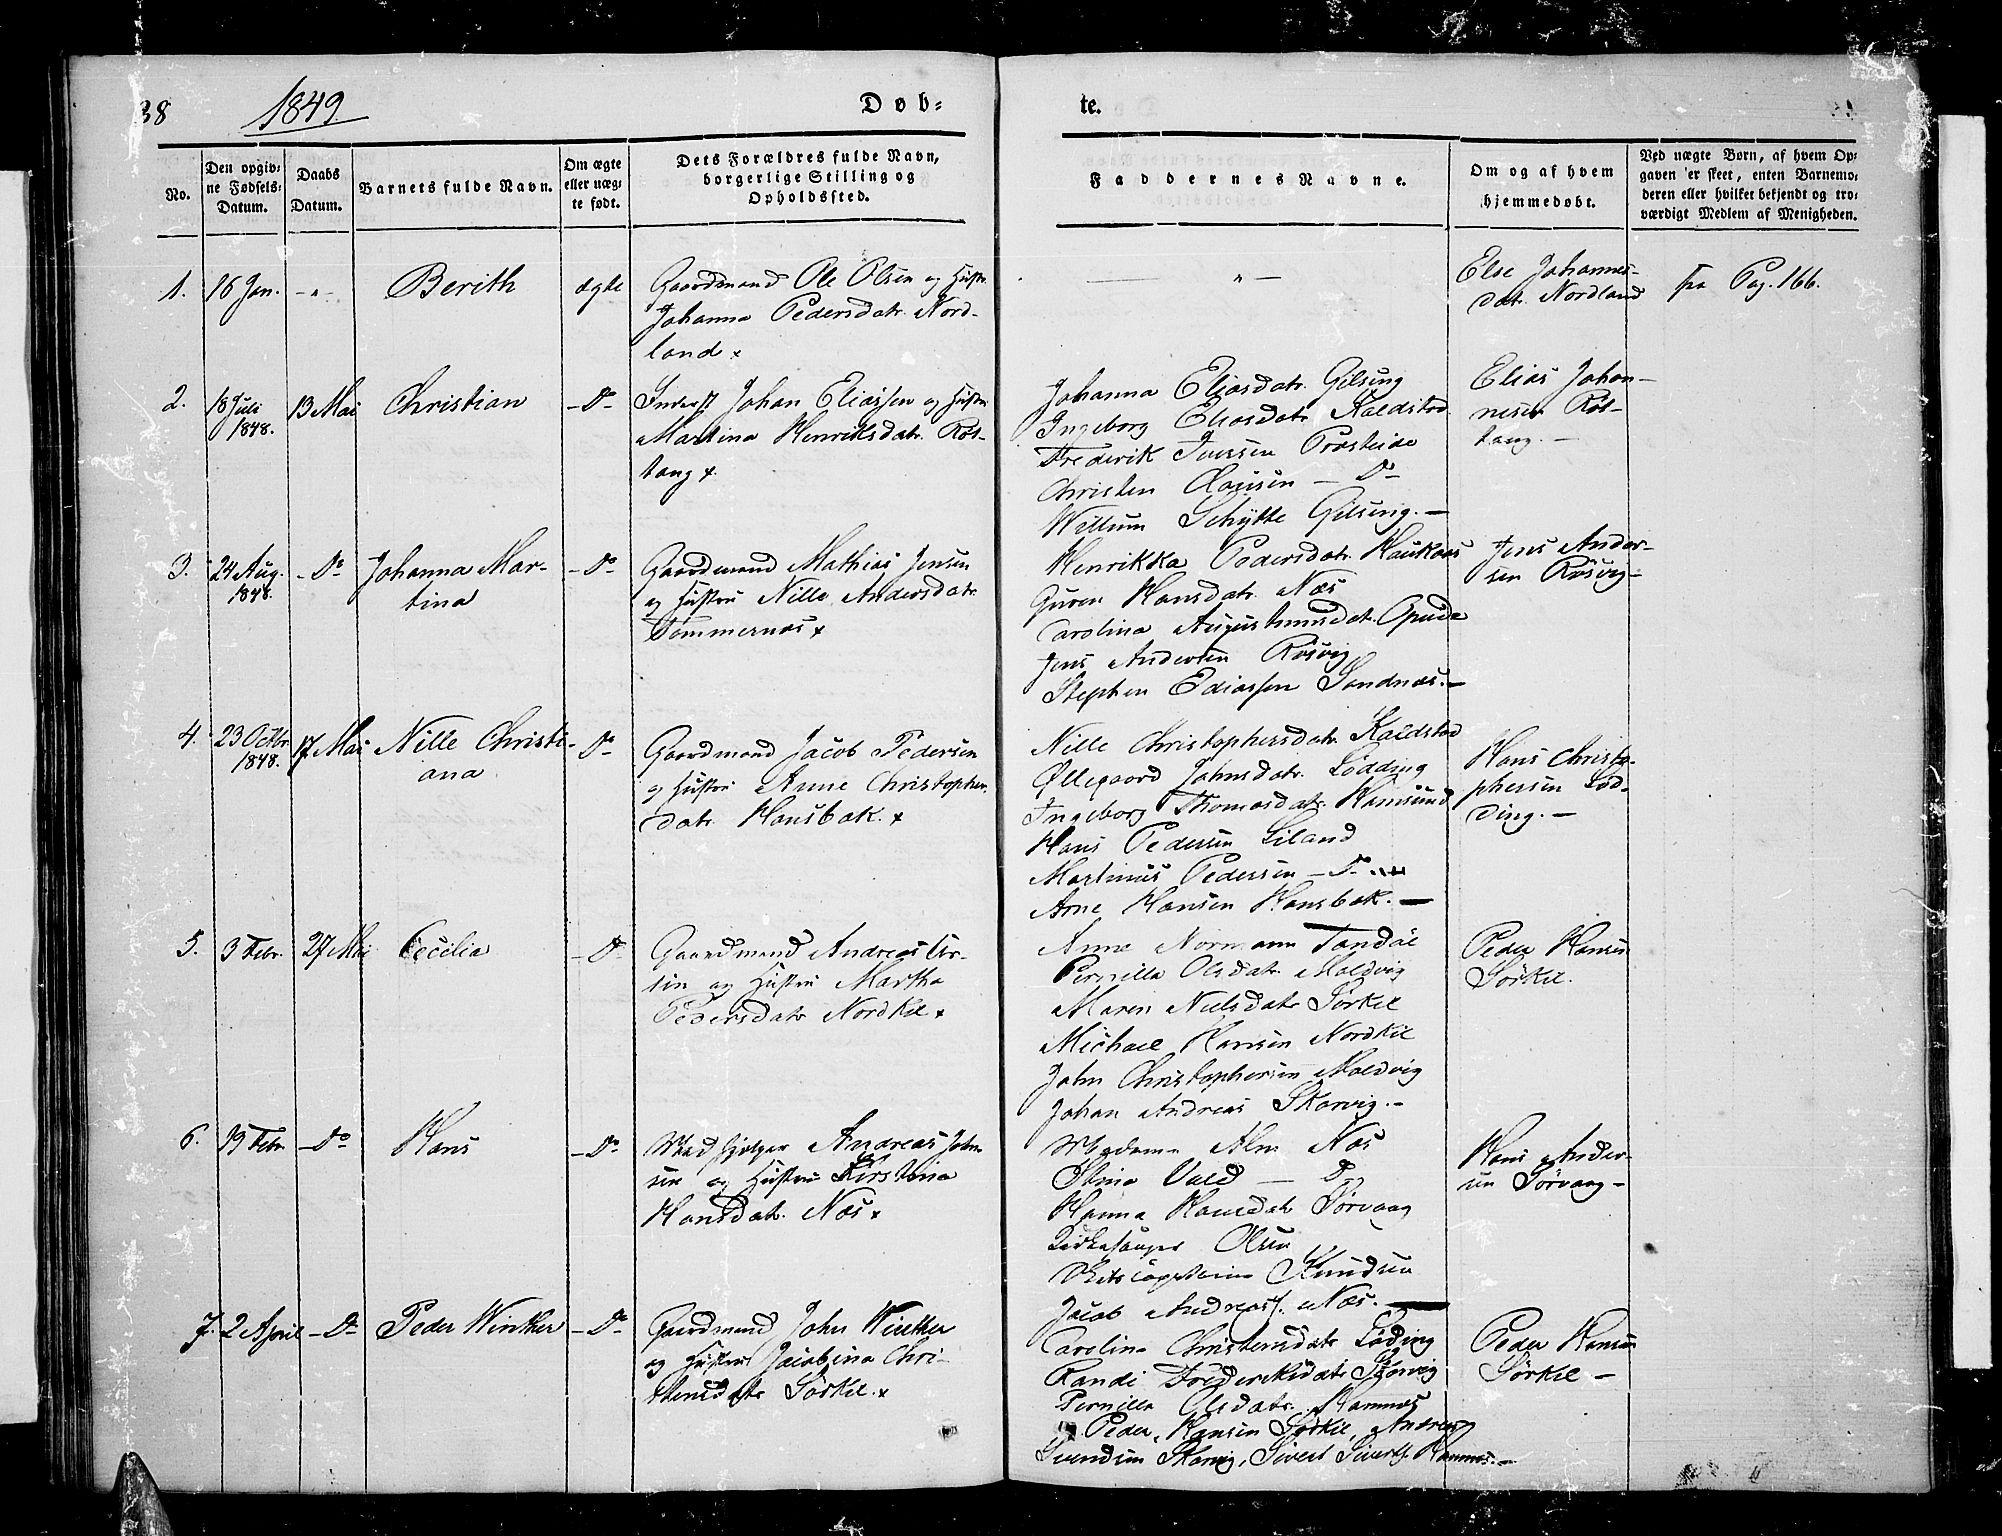 38
1849.
Døb=
te.
No.
Den opgiv=
ne Fødsels=
Datum.
Daabs
Datum.
Barnets fulde Navn.
Om ægte
eller uæg=
te født.
Dets Forældres fulde Navn,
borgerlige Stilling og
Opholdssted.
Faddernes Navne.
Om og af hvem
hjemmedøbt.
Ved uægte Børn, af hvem Op=
gaven er skeet, enten Barnemo=
deren eller hvilket bekjendt og tro=
værdigt Medlem af Menigheden.
1.
16 Jan.
- " -
Berith
ægte
Gaardmand Ole Olsen og Hustr.
Johanna Pedersdatr. Nord-
land x
— " —
Else Johannes-
datr. Nordland
fra Pag. 166.
2.
18 Juli
1848.
13 Mai
Christian
- Do -
Inderst Johan Eliassen og Hustru
Martina Henriksdatr. Røs-
tang x.
Johanna Eliasdatr. Gilsing
Ingeborg Eliasdatr. Kaldstad
Frederik Iversen Præsteide
Christen Clausen — Do
Willum Schytte Gilsing. —
Elias Johan-
nesen Røs-
tang. —
3.
24 Aug.
1848.
- Do
Johanna Mar-
tina
- Do -
Gaardmand Mathias Jensen
og Hustru Nille Andersdatr.
Tømmernæs x
Henrikka Pedersdatr. Haukaas
Guren Hansdatr. Næs
Carolina Augustinusdatr. Opeide
Jens Andersen Røsvig
Stephen Ediassen Sandnæs. —
Jens Ander-
sen Røsvig -
4.
23 Octbr
1848.
17 Mai
Nille Christi-
ana
- Do -
Gaardmand Jacob Pedersen
og Hustru Anne Christopher.
datr. Hansbak. x
Nille Christophersdatr. Kaldstad
Øllegaard Johnsdatr. Lødding
Ingeborg Thomasdatr. Hamsund
Hans Pedersen Liland
Martinus Pedersen — Do
Arne Hansen Hansbak. —
Hans Christo-
phersen Lød-
ding. —
5.
3 Febr.
27 Mai
Cecilia
- Do -
Gaardmand Andreas Lar-
sen og Hustru Martha
Pedersdatr. Nordkil x
Anne Normann Tandøe
Pernilla Olsdatr. Maldvig
Maren Nielsdatr. Sørkil
Michael Hansen Nordkil
John Christophersen Maldvig
Johan Andreas Skarvig. —
Peder Hansen
Sørkil.
6.
19 Febr.
- Do -
Hans
- Do -
Andreas John
sen og Hustru Kirstina
Hansdatr. Næs x
Madame Alm Næs
Stina Vald — Do
Hanna Hansdatr. Sørvaag
Kirkesanger Olsen
Knudsen
Jacob Andreass. Næs. —
Hans Ander-
sen Sørvaag -
7.
2 April
- Do
Peder Winther
- Do -
Gaardmand John Winther
og Hustru Jacobina Chri-
stensdatr. Sørkil. x
Carolina Christensdatr. Løding
Randi Frederiksdatr. Skarvig
Pernilla Olsdatr. Hamnæs
Peder Hansen Sørkil, Andreas
Svendsen Skarvig, Sivert Siverts. Hamnæs. —
Peder Hansen
Sørkil —